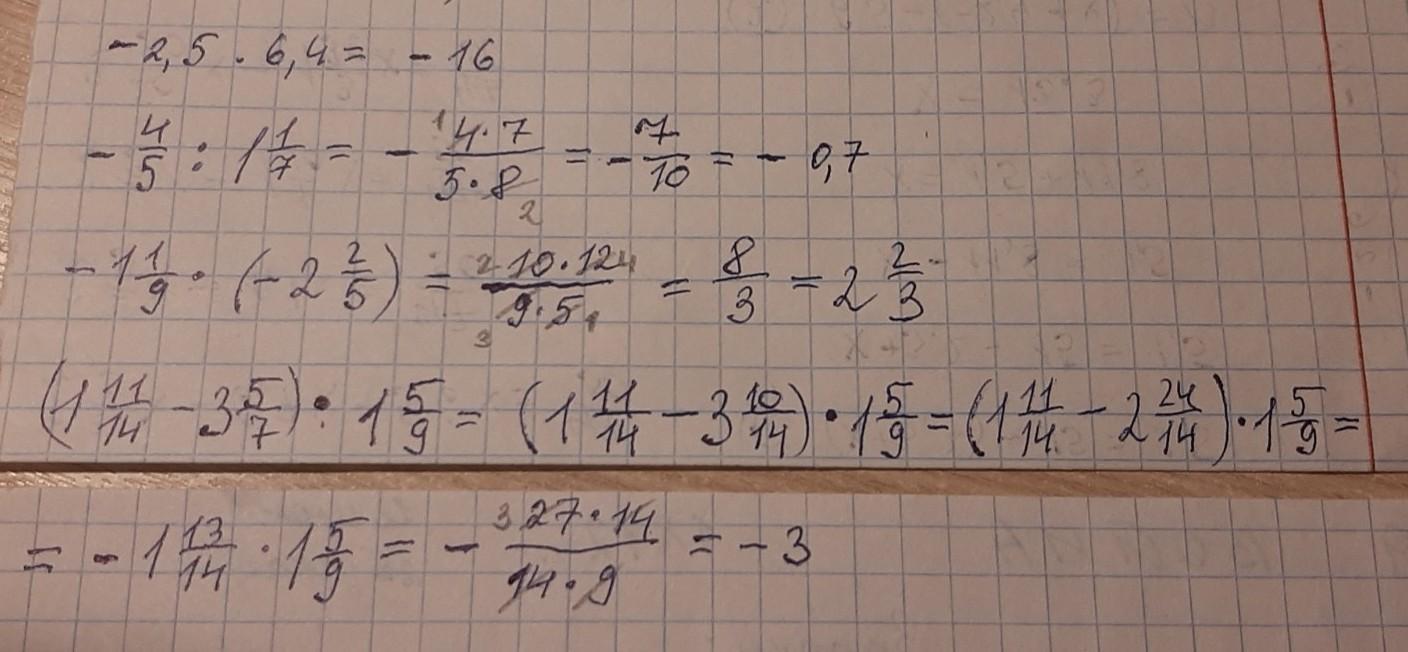 -2,5 · 6,4 = -16
- 4/5 : 1 1/7 = - (4·7)/(5·8) = - 7/10 = - 0,7
-1 1/9 · (-2 2/5) = (10·12)/(9·5) = 8/3 = 2 2/3
(1 11/14 - 3 5/7) · 1 5/9 = (1 11/14 - 3 10/14) · 1 5/9 = (1 11/14 - 2 24/14) · 1 5/9 =
= -1 13/14 · 1 5/9 = - (27·14)/(14·9) = -3